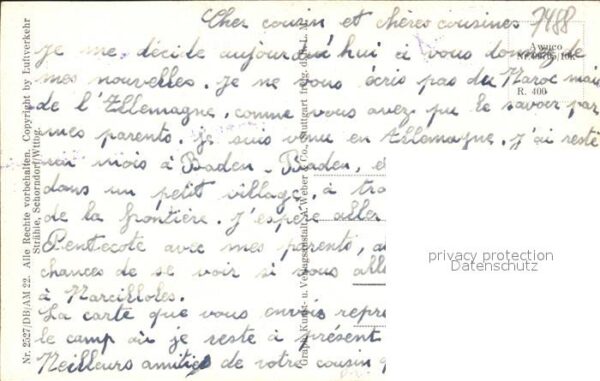 Cher cousin et chères cousines 7488
je me décide aujourd'hui à vous donner de
mes nouvelles. Je ne vous écris pas du Maroc mais
de l'Allemagne, comme vous avez pu le savoir par
mes parents. je suis venu en Allemagne. J'ai resté
mois à Baden-Baden, e
dans un petit village, à tro
de la frontière. J'espère aller
Pentecote avec mes parents, a
chances de se voir si vous alle
à Marcilloles.
La carte que vous envois repré
le camp où je reste à présent
Meilleurs amitiés de votre cousin q
Nr. 2527/DB/AM 22. Alle Rechte vorbehalten. Copyright by Luftverkehr
Strähle, Schorndorf/Wttbg.
Graph. Kunst- u. Verlagsanstalt A. Weber & Co., Stuttgart freig. d. L. M.
Awuco
R. 400
privacy protection
Datenschutz